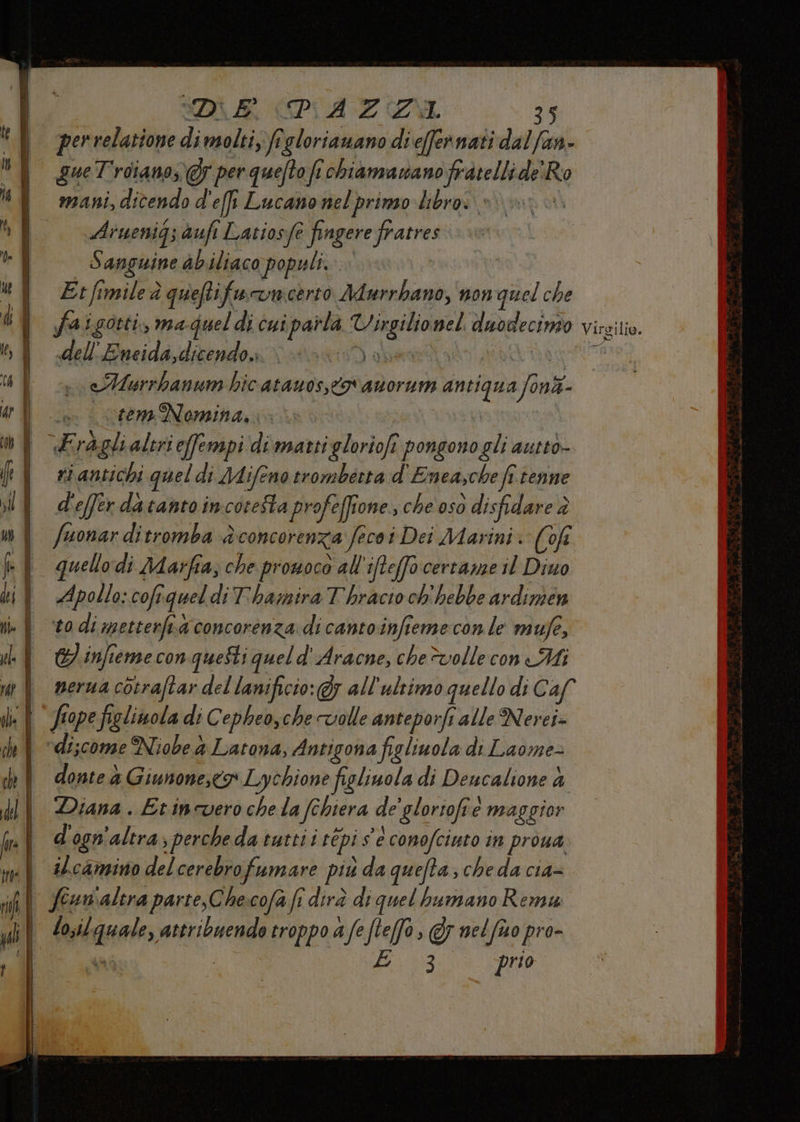 DE PAZZI. 35
per relatione di molti, ſi gloriauano di eſſer nati dal ſan-
gue Troiano, & per queſto ſi chiamauano fratelli de' Ro
mani, dicendo d'eſſi Lucano nel primo libro.
Arueniq; auſi Latios ſe fingere fratres
Sanguine ab iliaco populi.
Et ſimile à queſti fu vn certo Murrhano, non quel che
fa i gotti, ma quel di cui parla Virgilio nel duodecimo
Virgilio.
dell' Eneida, dicendo.
Murrhanum hic atauos, & auorum antiqua ſonã-
tem Nomina.
Fra gli altri eſſempi di matti glorioſi pongono gli autto-
ri antichi quel di Miſeno trombetta d'Enea, che ſi tenne
d'eſſer da tanto in coteſta profeſſione, che osò disfidare à
ſuonar di tromba à concorenza ſeco i Dei Marini. Coſi
quello di Marſia, che prouocò all'iſteſſo certame il Diuo
Apollo: coſi quel di Thamira Thracio ch'hebbe ardimen
to di metterſi à concorenza di canto inſieme con le muſe,
& inſieme con queſti quel d'Aracne, che volle con Mi
nerua cõtraſtar del lanificio: & all'ultimo quello di Caſ
ſiope figliuola di Cepheo, che volle anteporſi alle Nerei-
di; come Niobe à Latona, Antigona figliuola di Laome-
donte à Giunone, & Lychione figliuola di Deucalione à
Diana. Et in vero che la ſchiera de' glorioſi è maggior
d'ogn'altra, perche da tutti i tẽpi s'è conoſciuto in proua
il camino del cerebro fumare più da queſta, che da cia-
ſcun'altra parte, Che coſa ſi dirà di quel humano Remu
lo, il quale, attribuendo troppo à ſe ſteſſo, & nel ſuo pro-
E 3 prio